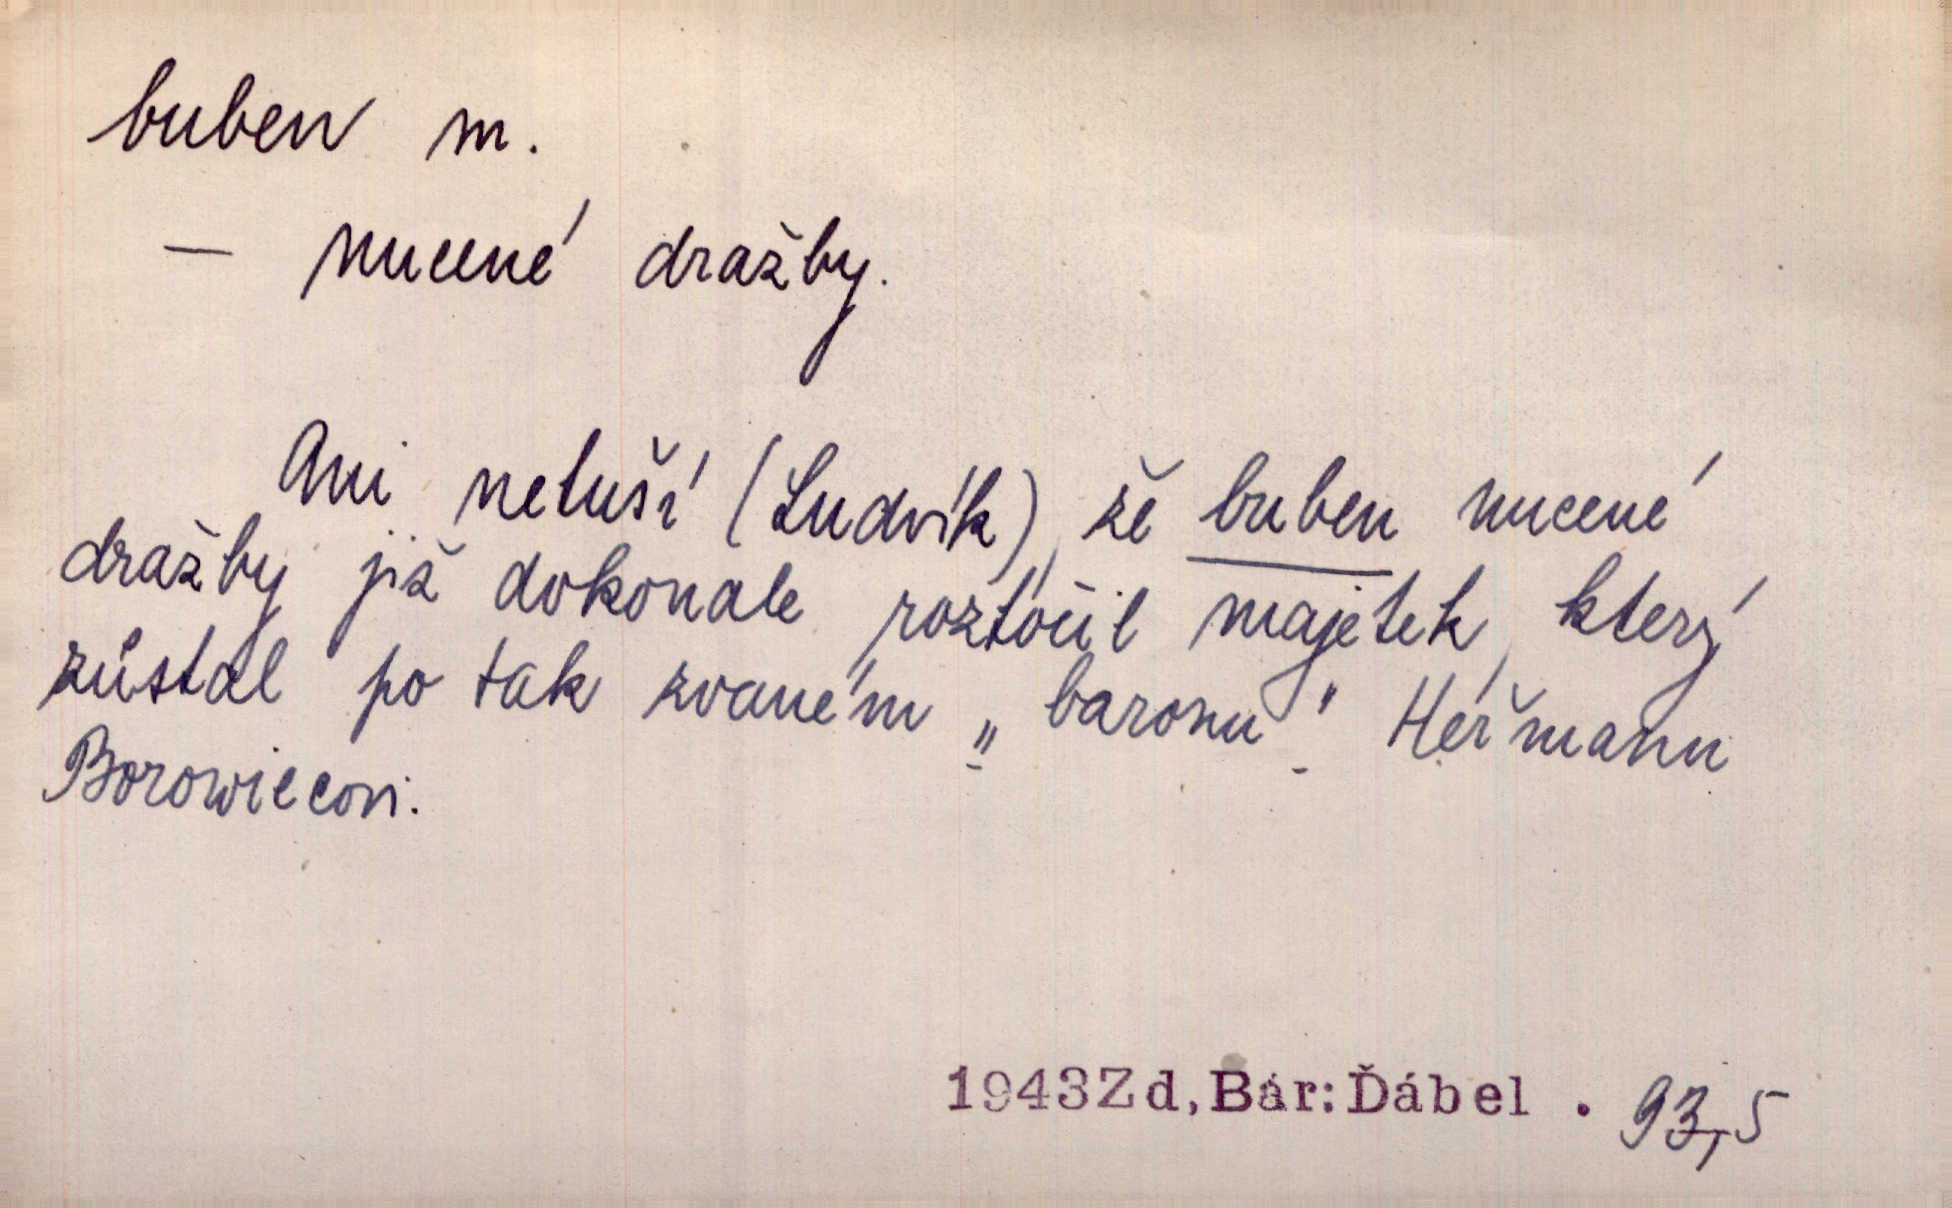 buben m.
— nucené dražby.
Ani netuší (Ludvík), že buben nucené
dražby již dokonale roztočil majetek, který
zůstal po tak zvaném „baronu" Heřmanu
Borowiecovi.
1943Zd,Bár:Ďábel . 93,5